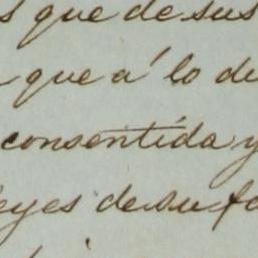 s que de sus
que a' lo de
consentida y
leyes de su fa